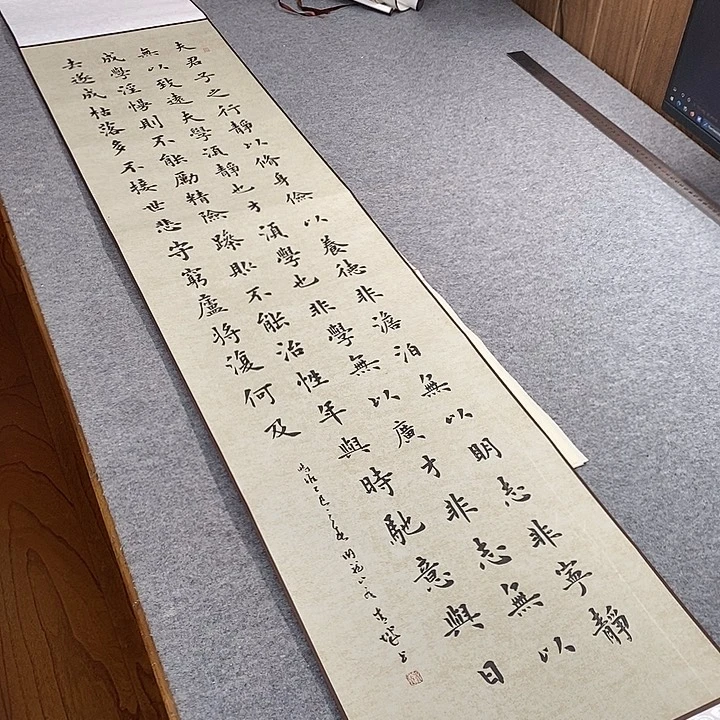 夫君子之行靜以脩身儉以養德非澹泊無以明志非寧靜
無以致遠夫學須靜也才須學也非學無以廣才非志無以
成學淫慢則不能勵精險躁則不能治性年與時馳意與日
去遂成枯落多不接世悲守窮廬將復何及